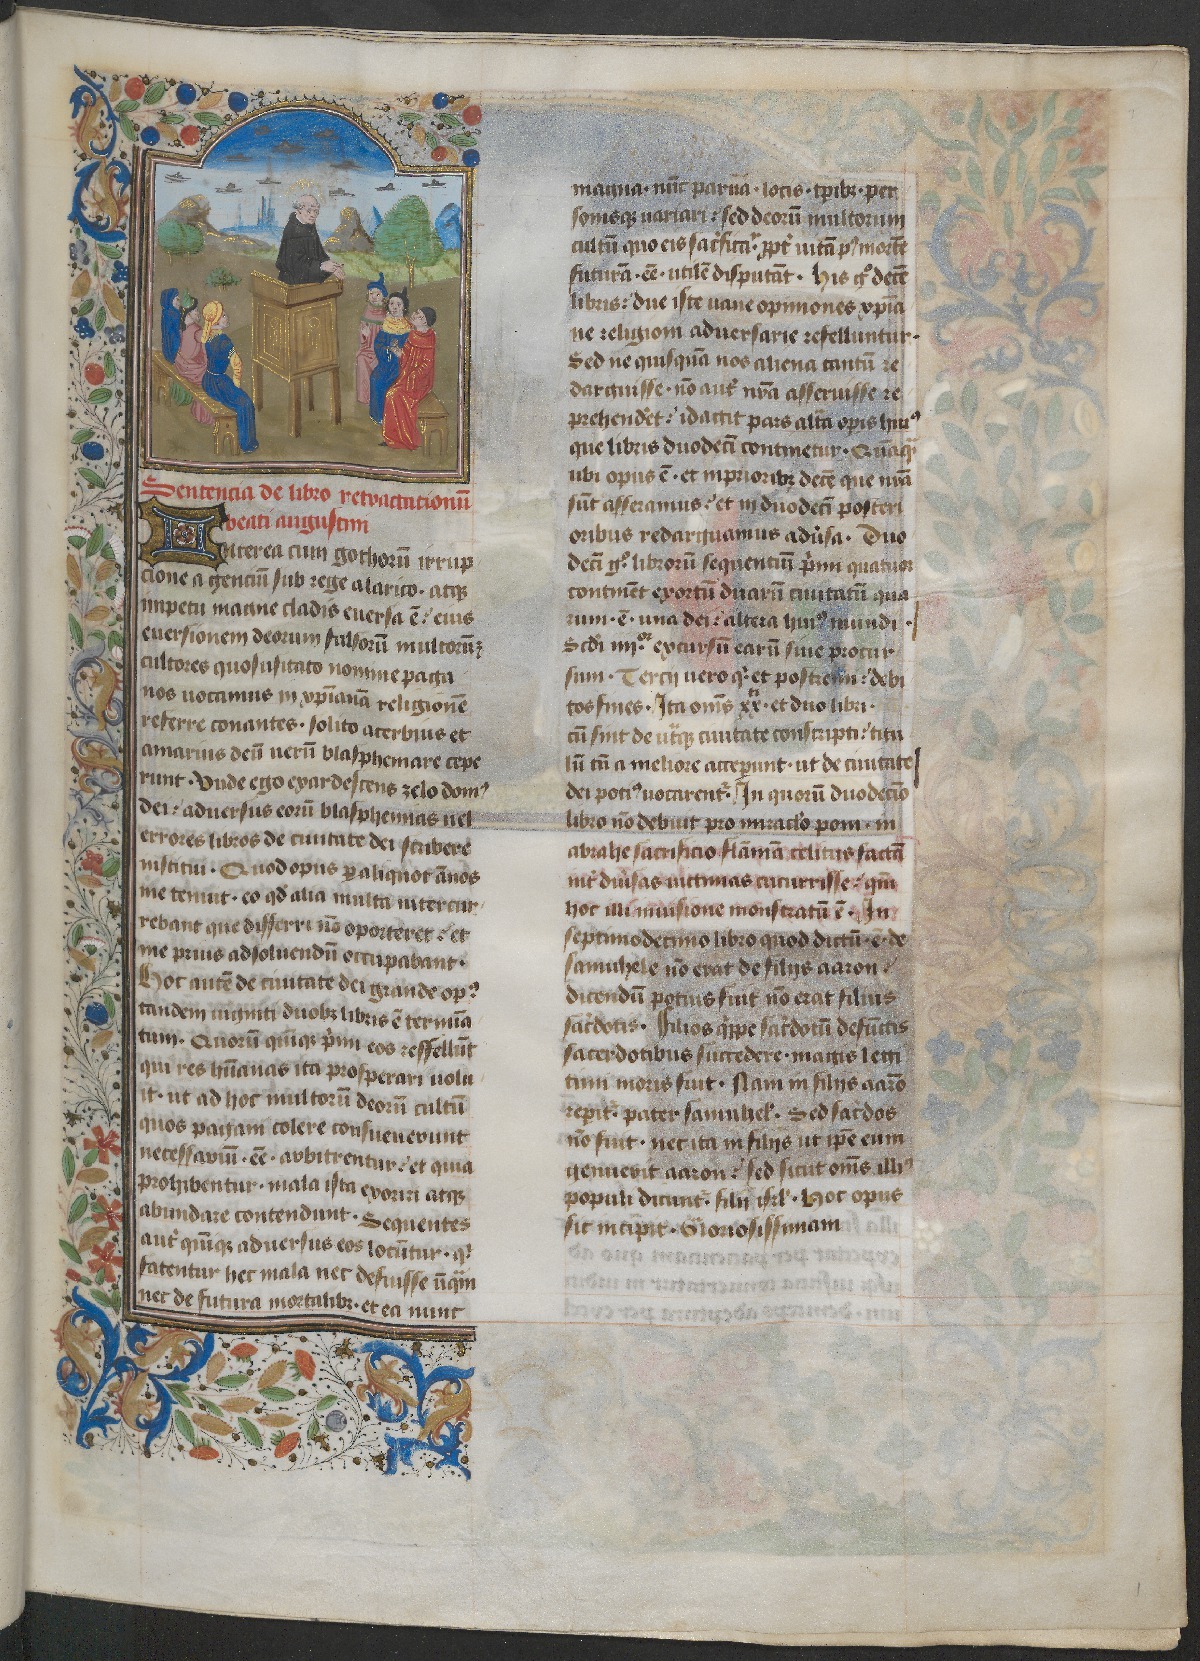 Sentencia de libro retractationū
beati augustini
Interea cum gothorū irrup
cione agenciū sub rege alarico · atq;
impetu magne cladis euersa ē : eius
euersionem deorum falsorū multorūq;
cultores quos usitato nomine paga
nos uocamus in xp̄ianā religionē
referre conantes · solito acerbius et
amarius deū uerū blasphemare cepe
runt · Unde ego exardescens zelo domꝰ
dei : aduersus eorū blasphemias uel
errores libros de ciuitate dei scribere
institui · Quod opus p aliquot ānos
me tenuit · eo qd alia multa intercur
rebant que differri nō oporteret : et
me prius adsoluendū occupabant ·
Hoc autē de ciuitate dei grande opꝰ
tandem uiginti duobꝫ libris ē termīa
tum · Quorū quiq; p̄mi eos reffellūt
qui res hūanas ita prosperari uolu
it · ut ad hoc multorū deorū cultū
quos pagani colere consueuerunt
necessariū · ēē · arbitrentur : et quia
prohibentur · mala ista exoriri atq;
abundare contendunt · Sequentes
aut̄ quiq; aduersus eos locūtur · q'
fatentur hec mala nec defuisse ūqm̄
nec de futura mortalibꝫ · et ea nunc
magna · nūc parua · locis · tp̄ibꝫ · per
sonisq; uariari : sed deorū multorum
cultū quo eis sac̄ficat̄ · ppt̄ uitā p' mortē
futurā · ēē · utilē disputāt · His gͦ decē
libris : due iste uane opiniones xp̄ia
ne religioni aduersarie refelluntur ·
Sed ne quisquā nos aliena tantū re
darguisse · nō aut̄ nr̄a asseruisse re
prehendet : id agit pars altā opis huiꝰ
que libris duodecī continetur · Quāq̄
ubi opus ē · et in prioribꝫ decē que nr̄a
sūt asseramus : et in duodecī posteri
oribus redarguamus adūsa · Duo
decī gͦ librorū sequentiū p̄mi quatuor
continēt exortū duarū ciuitatū qua
rum · ē · una dei : altera huiꝰ mundi ·
Scd̄i iiijͦʳ excursū earū siue procur
sum · Tercij uero q' et postremi : debi
tos fines · Ita om̄s xx · et duo libri ·
cū sint de utq; ciuitate conscripti : titu
lū tn̄ a meliore acceperunt · ut de ciuitate
dei potiꝰ uocarent̄ · In quorū duodecīo
libro nō debuit pro miraclo poni · in
abrahe sacrificio flāmā celitus factā
int̄ diuisas uictimas cucurrisse : qm̄
hoc illi in uisione monstratū ē · In
septimodecimo libro quod dictū · ē · de
samuhele nō erat de filijs aaron :
dicendū potius fuit nō erat filius
sac̄dotis · Filios q̄ppe sac̄dotū defūctis
sacerdotibus succedere · magis legi
timi moris fuit · Nam in filijs aarō
repit̄ pater samuhel' · Sed sac̄dos
nō fuit · nec ita in filijs ut ip̄e eum
genuerit aaron : sed sicut om̄s illiꝰ
populi dicunt̄ filij isrl' · Hoc opus
sic incipit · Gloriosissimam